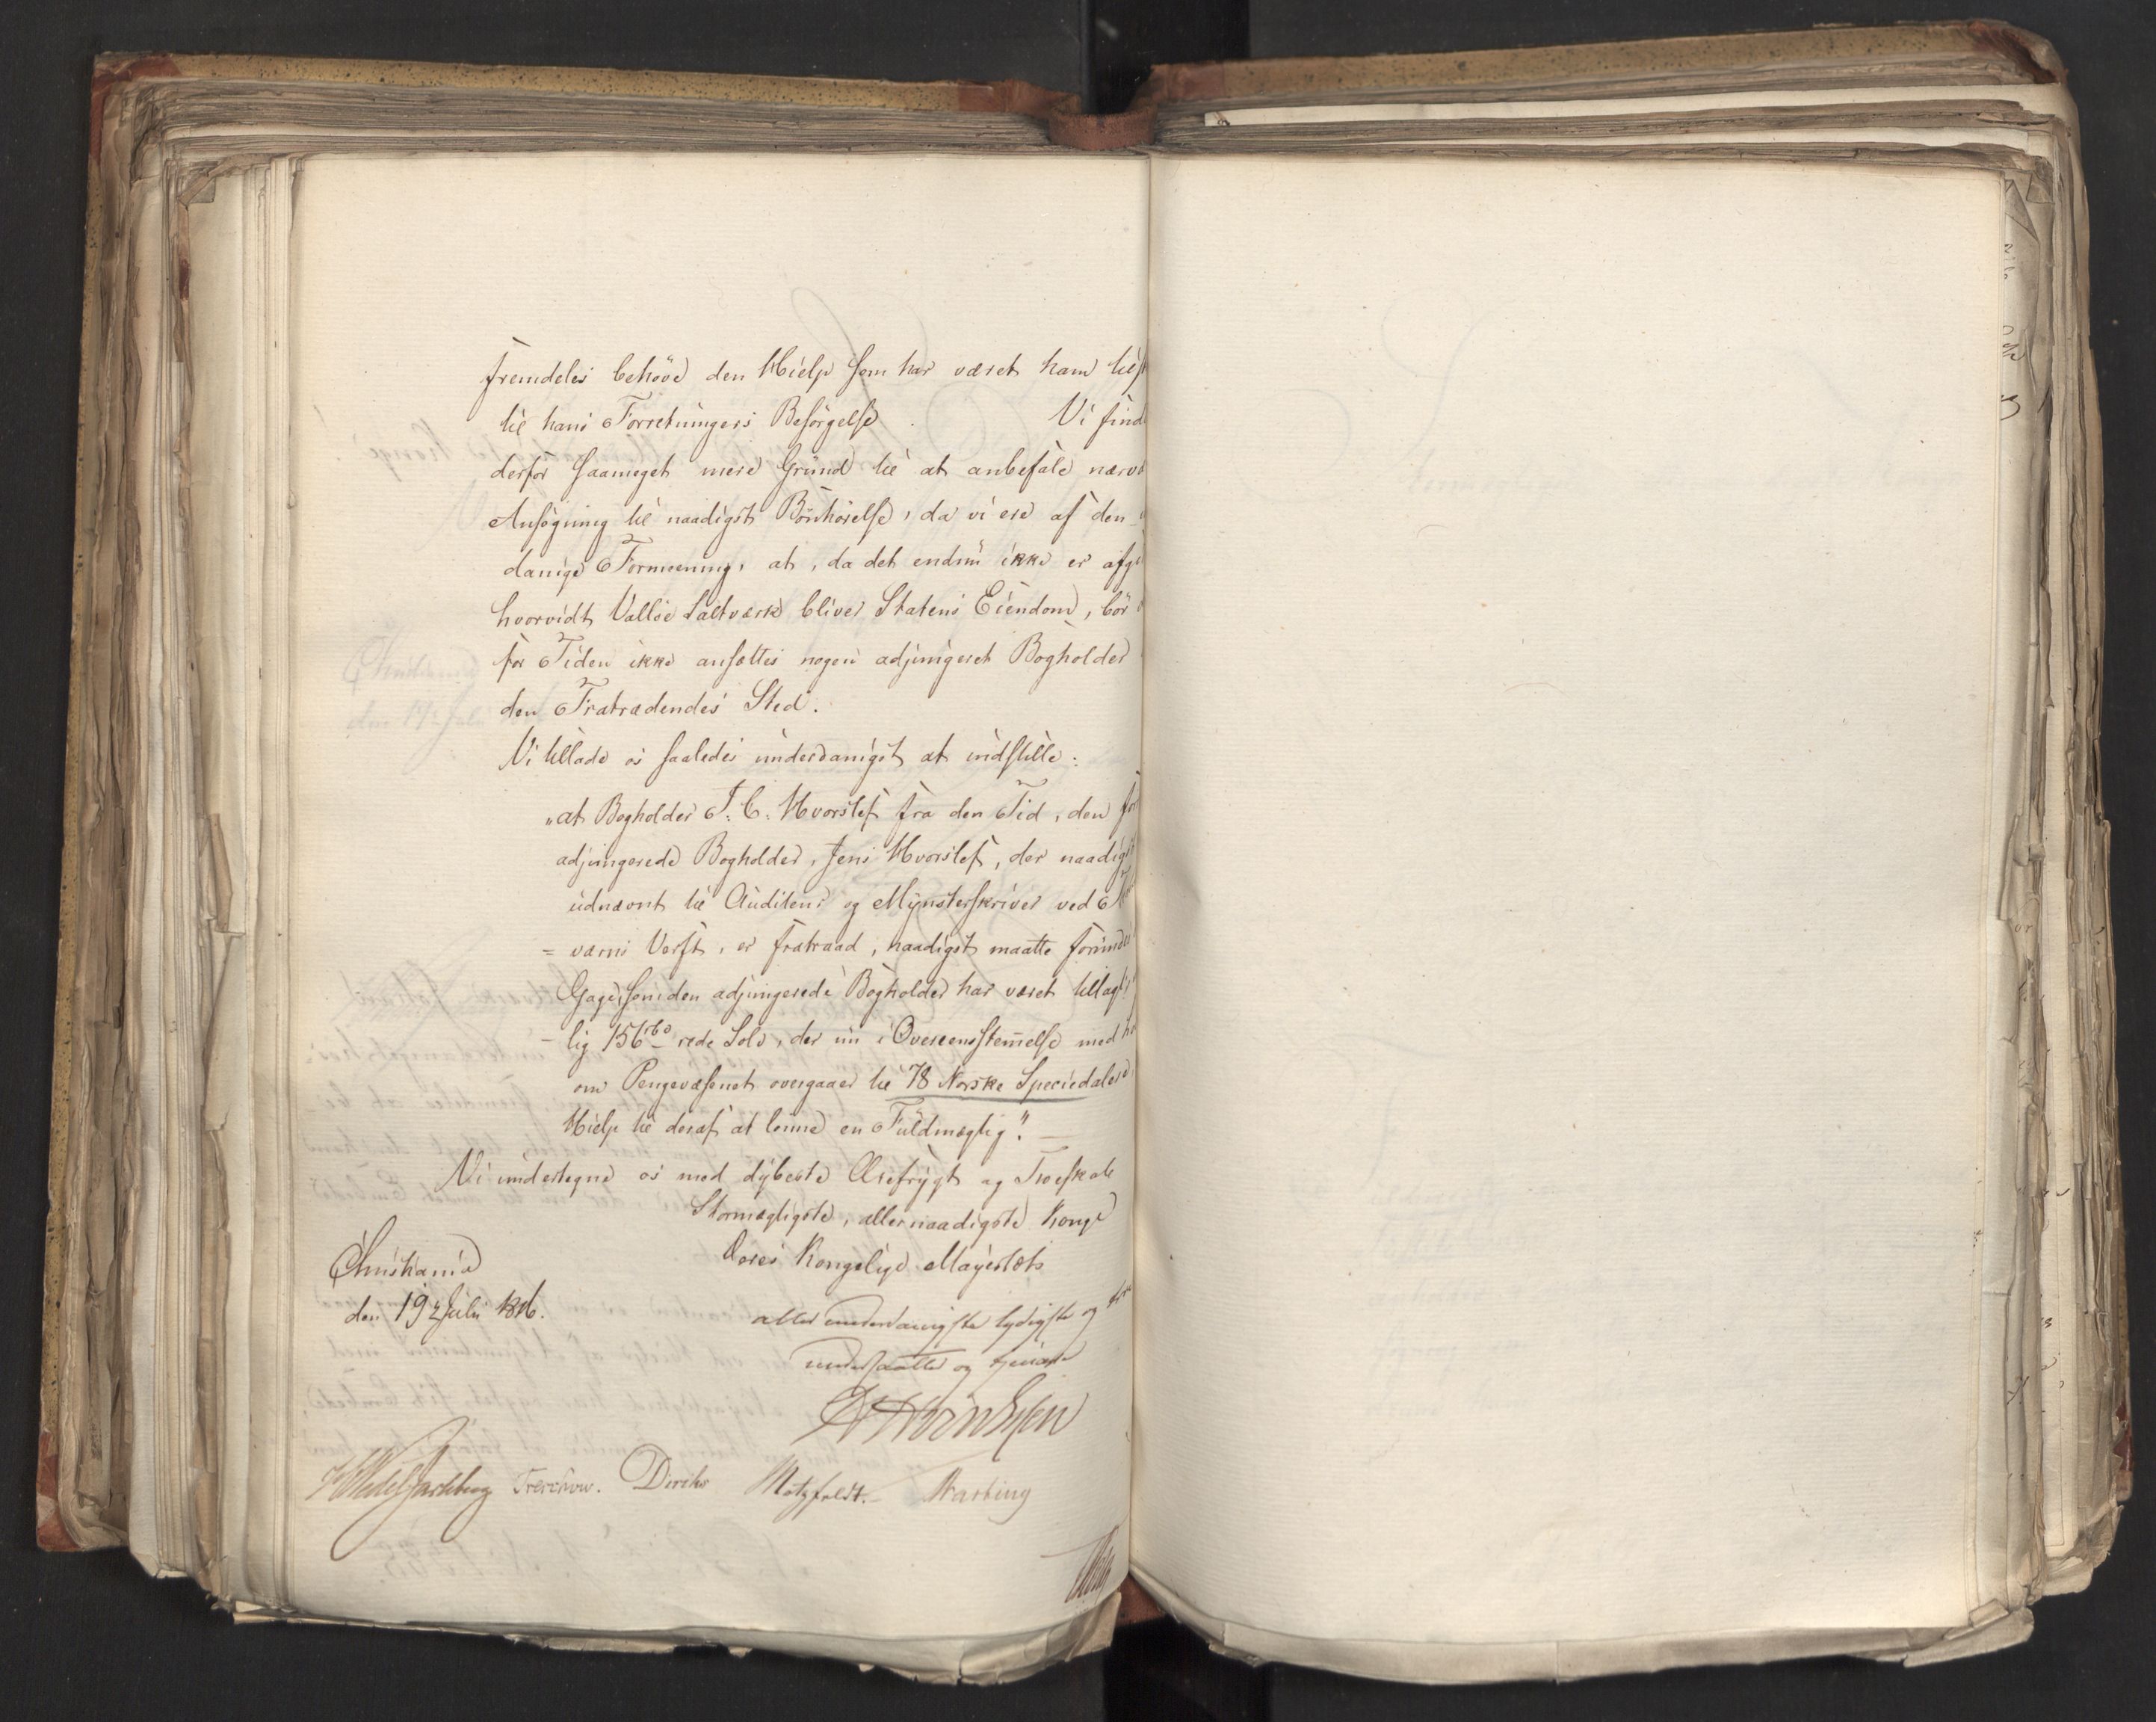 fremdeles behøve den Hielp som har været ham
til hans Forretningers Besørgelse. Vi find
derfor saameget mere Grund til at anbefale nærvæ
Ansøgning til naadigst Bønhørelse, da vi ere af den
danige Formeening, at, da det endnu ikke er afgi
hvorvidt Valløe Saltværk bliver Statens Eiendom, bør
for Tiden ikke ansættes nogen adjungeret Bogholder
den Fratrædendes Sted.
Vi tillade os saaledes underdanigst at indstille:
"at Bogholder J: C: Hvorslef fra den Tid, den for
adjungerede Bogholder, Jens Hvorslef, der naadigst
udnævnt til Auditeur og Mynsterskriver ved
= værns Verft, er fratraad, naadigst maatte forunde
Gage, som den adjungerede Bogholder har været tillagt
- lig 156 rbd rede Sølv, der nu i Overeensstemmelse med
om Pengevæsenet overgaaer til 78 Norske Speciedaler
Hielp til deraf at lønne en Fuldmægtig". —
Vi undertegne os med dybeste Ærefrygt og Troeskab
Stormægtigste, allernaadigste Konge
Deres Kongelige Mayestæts
Christiania
den 19de Juli 1816.
allerunderdanigste lydigste og
undersaatter og tjenere
Wedel Jarlsberg Treschow. Diriks Motzfeldt.